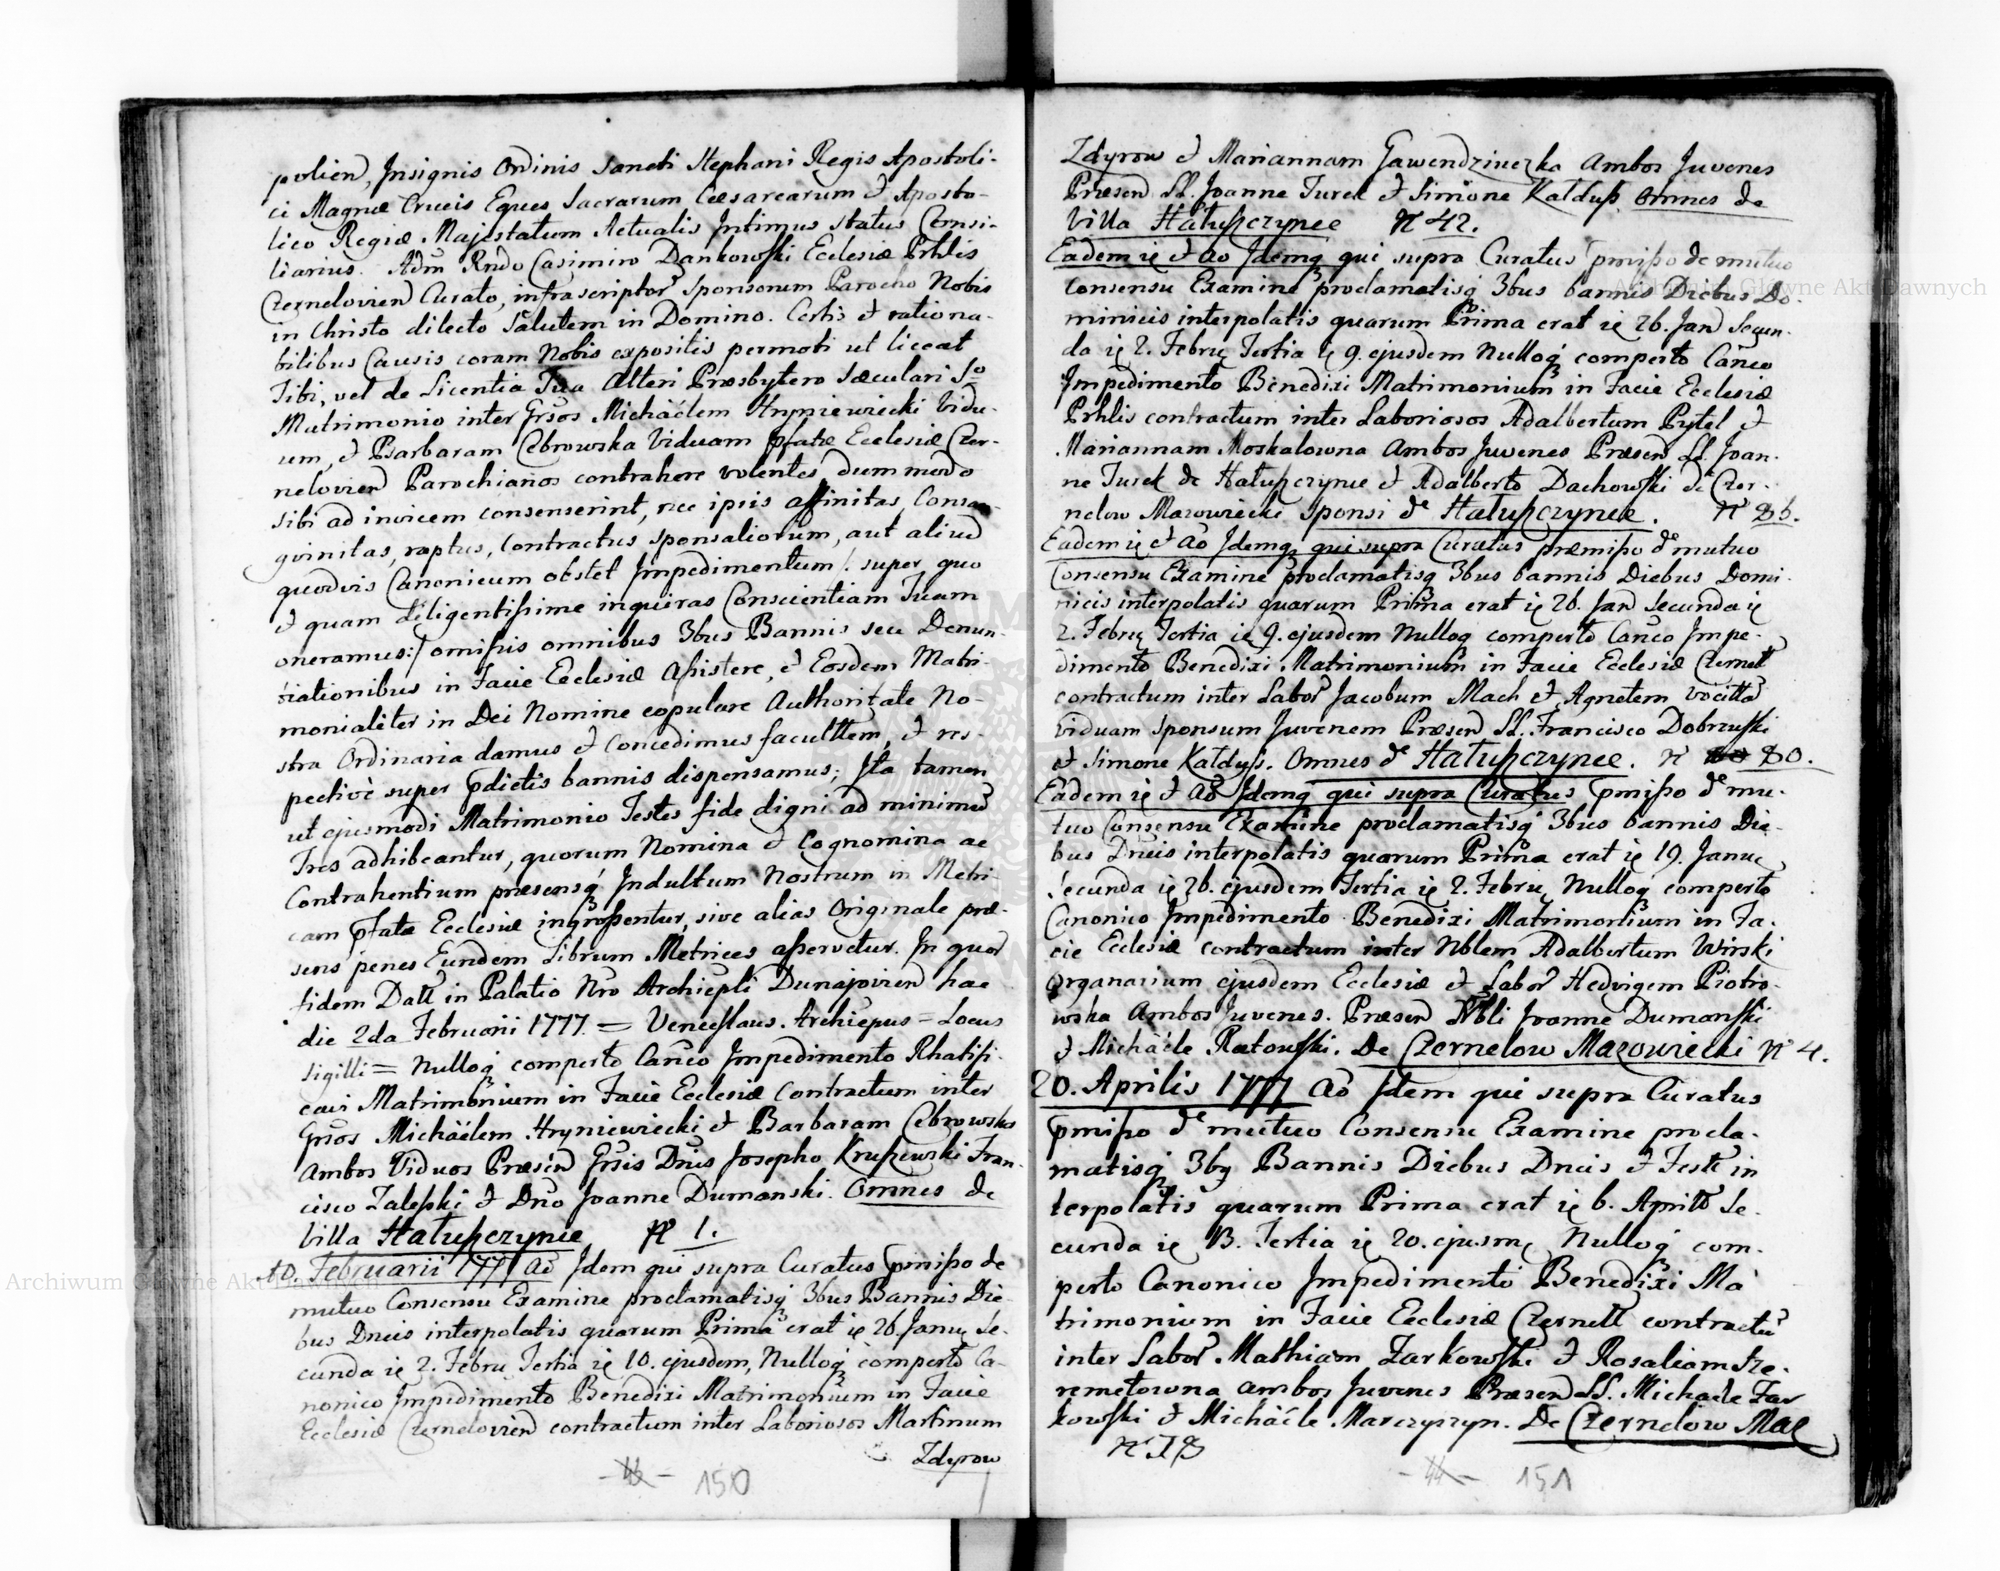 polien, Insignis Ordinis Sancti Stephani Regis Apostoli-
ci Magnæ Crucis Eques Sacrarum Cæsarearum et Aposto-
lico Regiæ Majestatum Actualis Intimus Status Consi-
liarius. Adm Rndo Casimiro Dankowski Ecclesiæ Prhlis
Czernelovien Curato, infrascriptor Sponsorum Parocho Nobis
in Christo dilecto Salutem in Domino. Certis et rationa-
bilibus Causis coram Nobis expositis permoti ut liceat
Tibi, vel de Licentia Tua Alteri Præsbytero Sæculari So
Matrimonio inter Grsos Michäelem Hryniewiecki Vidu-
um, et Barbaram Cebrowska Viduam pfatæ Ecclesiæ Czer-
nelovien Parochianos contrahere volentes, dummodo
sibi ad invicem consenserint, nec ipsis affinitas, Consan-
gvinitas, raptus, Contractus Sponsaliorum, aut aliud
quodvis Canonicum obstet Impedimentum /: super quo
et quam diligentissime inquiras Conscientiam Tuam
oneramus:/ omissis omnibus 3bus Bannis seu Denun-
tiationibus in Facie Ecclesiæ Assistere, et Eosdem Matri-
monialiter in Dei Nomine copulare Authoritate No-
stra Ordinaria damus et Concedimus faculttem, et res-
pectivè super pdictis bannis dispensamus; Ita tamen
ut ejusmodi Matrimonio Testes fide digni ad minimu
Tres adhibeantur, quorum Nomina et Cognomina ac
Contrahentium præsensq Indultum Nostrum in Metri-
cam pfatæ Ecclesiæ ingrossentur, sive alias Originale præ-
sens penes Eundem Librum Metrices asservetur. In quor
fidem Datt in Palatio Nro Archiepli Dunajovien hac
die 2da Februarii 1777. = Venceslaus. Archiepus = Locus
Sigilli = Nulloq comperto Canco Impedimento Rhatifi-
cavi Matrimonium in Facie Ecclesiæ Contractum inter
Grsos Michäelem Hryniewiecki et Barbaram Cebrowska
Ambos Viduos Præsen Grsis Dnis Josepho Kruszewski Fran-
cisco Zaleski et Dno Joanne Dumanski. Omnes de
Villa Hałuszczynce No 1.
10. Februarii 1777 Ao Idem qui supra Curatus pmisso de
mutuo Consensu Examine proclamatisq 3bus Bannis Die-
bus Dncis interpolatis quarum Prima erat ie 26. Janu Se-
cunda ie 2. Febru Tertia ie 10. ejusdem, Nulloq comperto Ca-
nonico Impedimento Benedixi Matrimonium in Facie
Ecclesiæ Czernelovien contractum inter Laboriosos Martinum
Zdyrow
-44- 150
Zdyrow et Mariannam Gawendzinezka Ambos Juvenes
Præsen LL. Joanne Turek et Simone Kałdus. Omnes de
Villa Hałuszczynce No 42.
Eadem ie et ao Idemq qui supra Curatus pmisso de mutuo
Consensu Examine proclamatisq 3bus bannis Diebus Do-
minicis interpolatis quarum Prima erat ie 26. Jan Secun-
da ie 2. Febru Tertia ie 9. ejusdem Nulloq comperto Canco
Impedimento Benedixi Matrimonium in Facie Ecclesiæ
Prhlis contractum inter Laboriosos Adalbertum Pytel et
Mariannam Moskalowna Ambos Juvenes Præsen LL. Joan-
ne Turek de Hałuszczynce et Adalberto Dachowski de Czer-
nelow Mazowiecki Sponsi de Hałuszczynce. No 86.
Eadem ie et ao Idemq qui supra Curatus præmisso de mutuo
Consensu Examine proclamatisq 3bus bannis Diebus Domi-
nicis interpolatis quarum Prima erat ie 26. Jan Secunda ie
2. Febru Tertia ie 9. ejusdem Nulloq comperto Canco Impe-
dimento Benedixi Matrimonium in Facie Ecclesiæ Czernell
contractum inter Labor Jacobum Mach et Agnetem vocitta
viduam Sponsum Juvenem Præsen LL. Francisco Dobrzuski
et Simone Kałdys. Omnes de Hałuszczynce. No 80.
Eadem ie et ao Idemq qui supra Curatus pmisso de mu-
tuo Consensu Examine proclamatisq 3bus bannis Die-
bus Dncis interpolatis quarum Prima erat ie 19. Janu
Secunda ie 26. ejusdem Tertia ie 2. Febru Nulloq comperto
Canonico Impedimento Benedixi Matrimonium in Fa-
cie Ecclesiæ contractum inter Nblem Adalbertum Wirski
Organarium ejusdem Ecclesiæ et Labor Hedvigem Piotro-
wska Ambos Juvenes. Præsen Nbli Joanne Dumanski
et Michäele Ratowski. De Czernelow Mazowiecki No 4.
20. Aprilis 1777 Ao Idem qui supra Curatus
pmisso de mutuo Consensu Examine procla-
matisq 3bq Bannis Diebus Dncis et Feste in
terpolatis quarum Prima erat ie 6. Aprill Se-
cunda ie 13. Tertia ie 20. ejusm Nulloq com-
perto Canonico Impedimento Benedixi Ma
trimonium in Facie Ecclesiæ Czernell contractu
inter Labor Mathiam Zarkowski et Rosaliam Sze-
remetowna ambos Juvenes Præsen LL. Michaele Zar
kowski et Michäele Marczyszyn. De Czernelow Maz
No 78
-44- 151
Archiwum Główne Akt Dawnych
Archiwum Główne Akt Dawnych